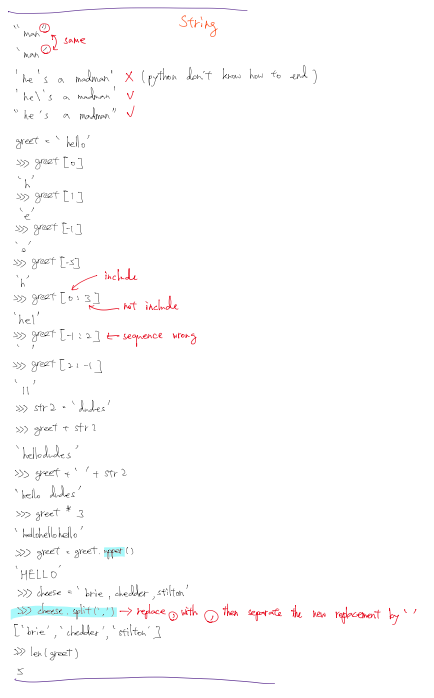 String
"man"
'man'
same
'he's a madman' X (python don't know how to end)
'he\'s a madman' ✓
"he's a madman" ✓
greet = 'hello'
>>> greet [0]
'h'
>>> greet [1]
'e'
>>> greet [-1]
'o'
>>> greet [-5]
'h'
include
>>> greet [0 : 3]
not include
'hel'
>>> greet [-1 : 2] ← sequence wrong
' '
>>> greet [2 : -1]
'll'
>>> str 2 = 'dudes'
>>> greet + str 2
'hellodudes'
>>> greet + ' ' + str 2
'hello dudes'
>>> greet * 3
'hellohellohello'
>>> greet = greet. upper ()
'HELLO'
>>> cheese = 'brie, chedder, stilton'
>>> cheese. split (',') → replace , with , then separate the new replacement by ' '
['brie', 'chedder', 'stilton']
>>> len (greet)
5